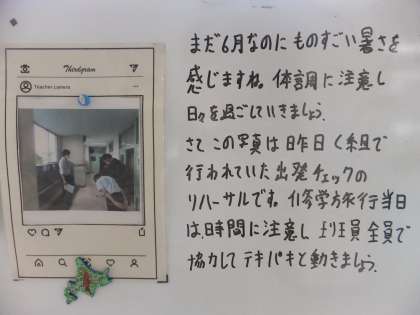 Thirdgram
Teacher camera
まだ6月なのにものすごい暑さを
感じますね。体調に注意し
日々を過ごしていきましょう。
さて この写真は昨日く組で
行われていた出発チェックの
リハーサルです。修学旅行当日
は、時間に注意し 班員全員で
協力してテキパキと動きましょう。